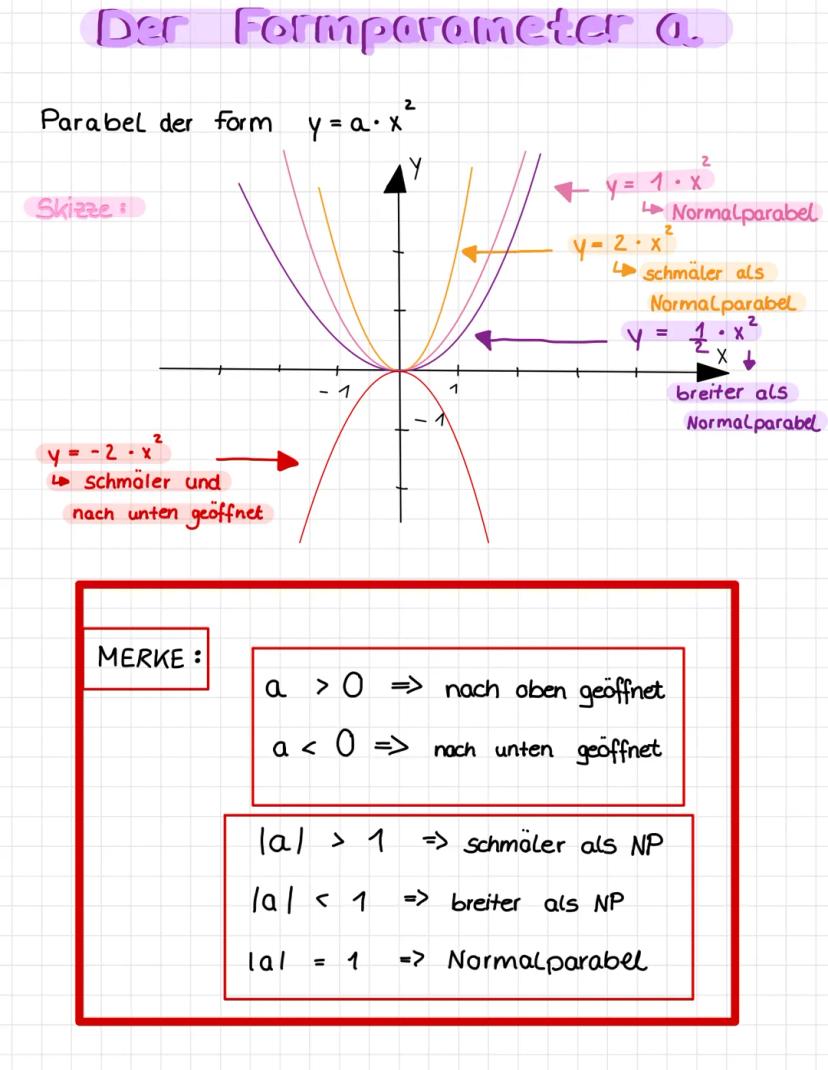 Der Formparameter a
Parabel der form y = a · x²
Skizze:
y
y = 1 · x²
↳ Normalparabel
y = 2 · x²
↳ schmäler als
Normalparabel
y = 1/2 · x²
x ↓
breiter als
Normalparabel
-1 1
-1
y = -2 · x²
↳ schmäler und
nach unten geöffnet
MERKE:
a > 0 => nach oben geöffnet
a < 0 => nach unten geöffnet
|a| > 1 => schmäler als NP
|a| < 1 => breiter als NP
|a| = 1 => Normalparabel